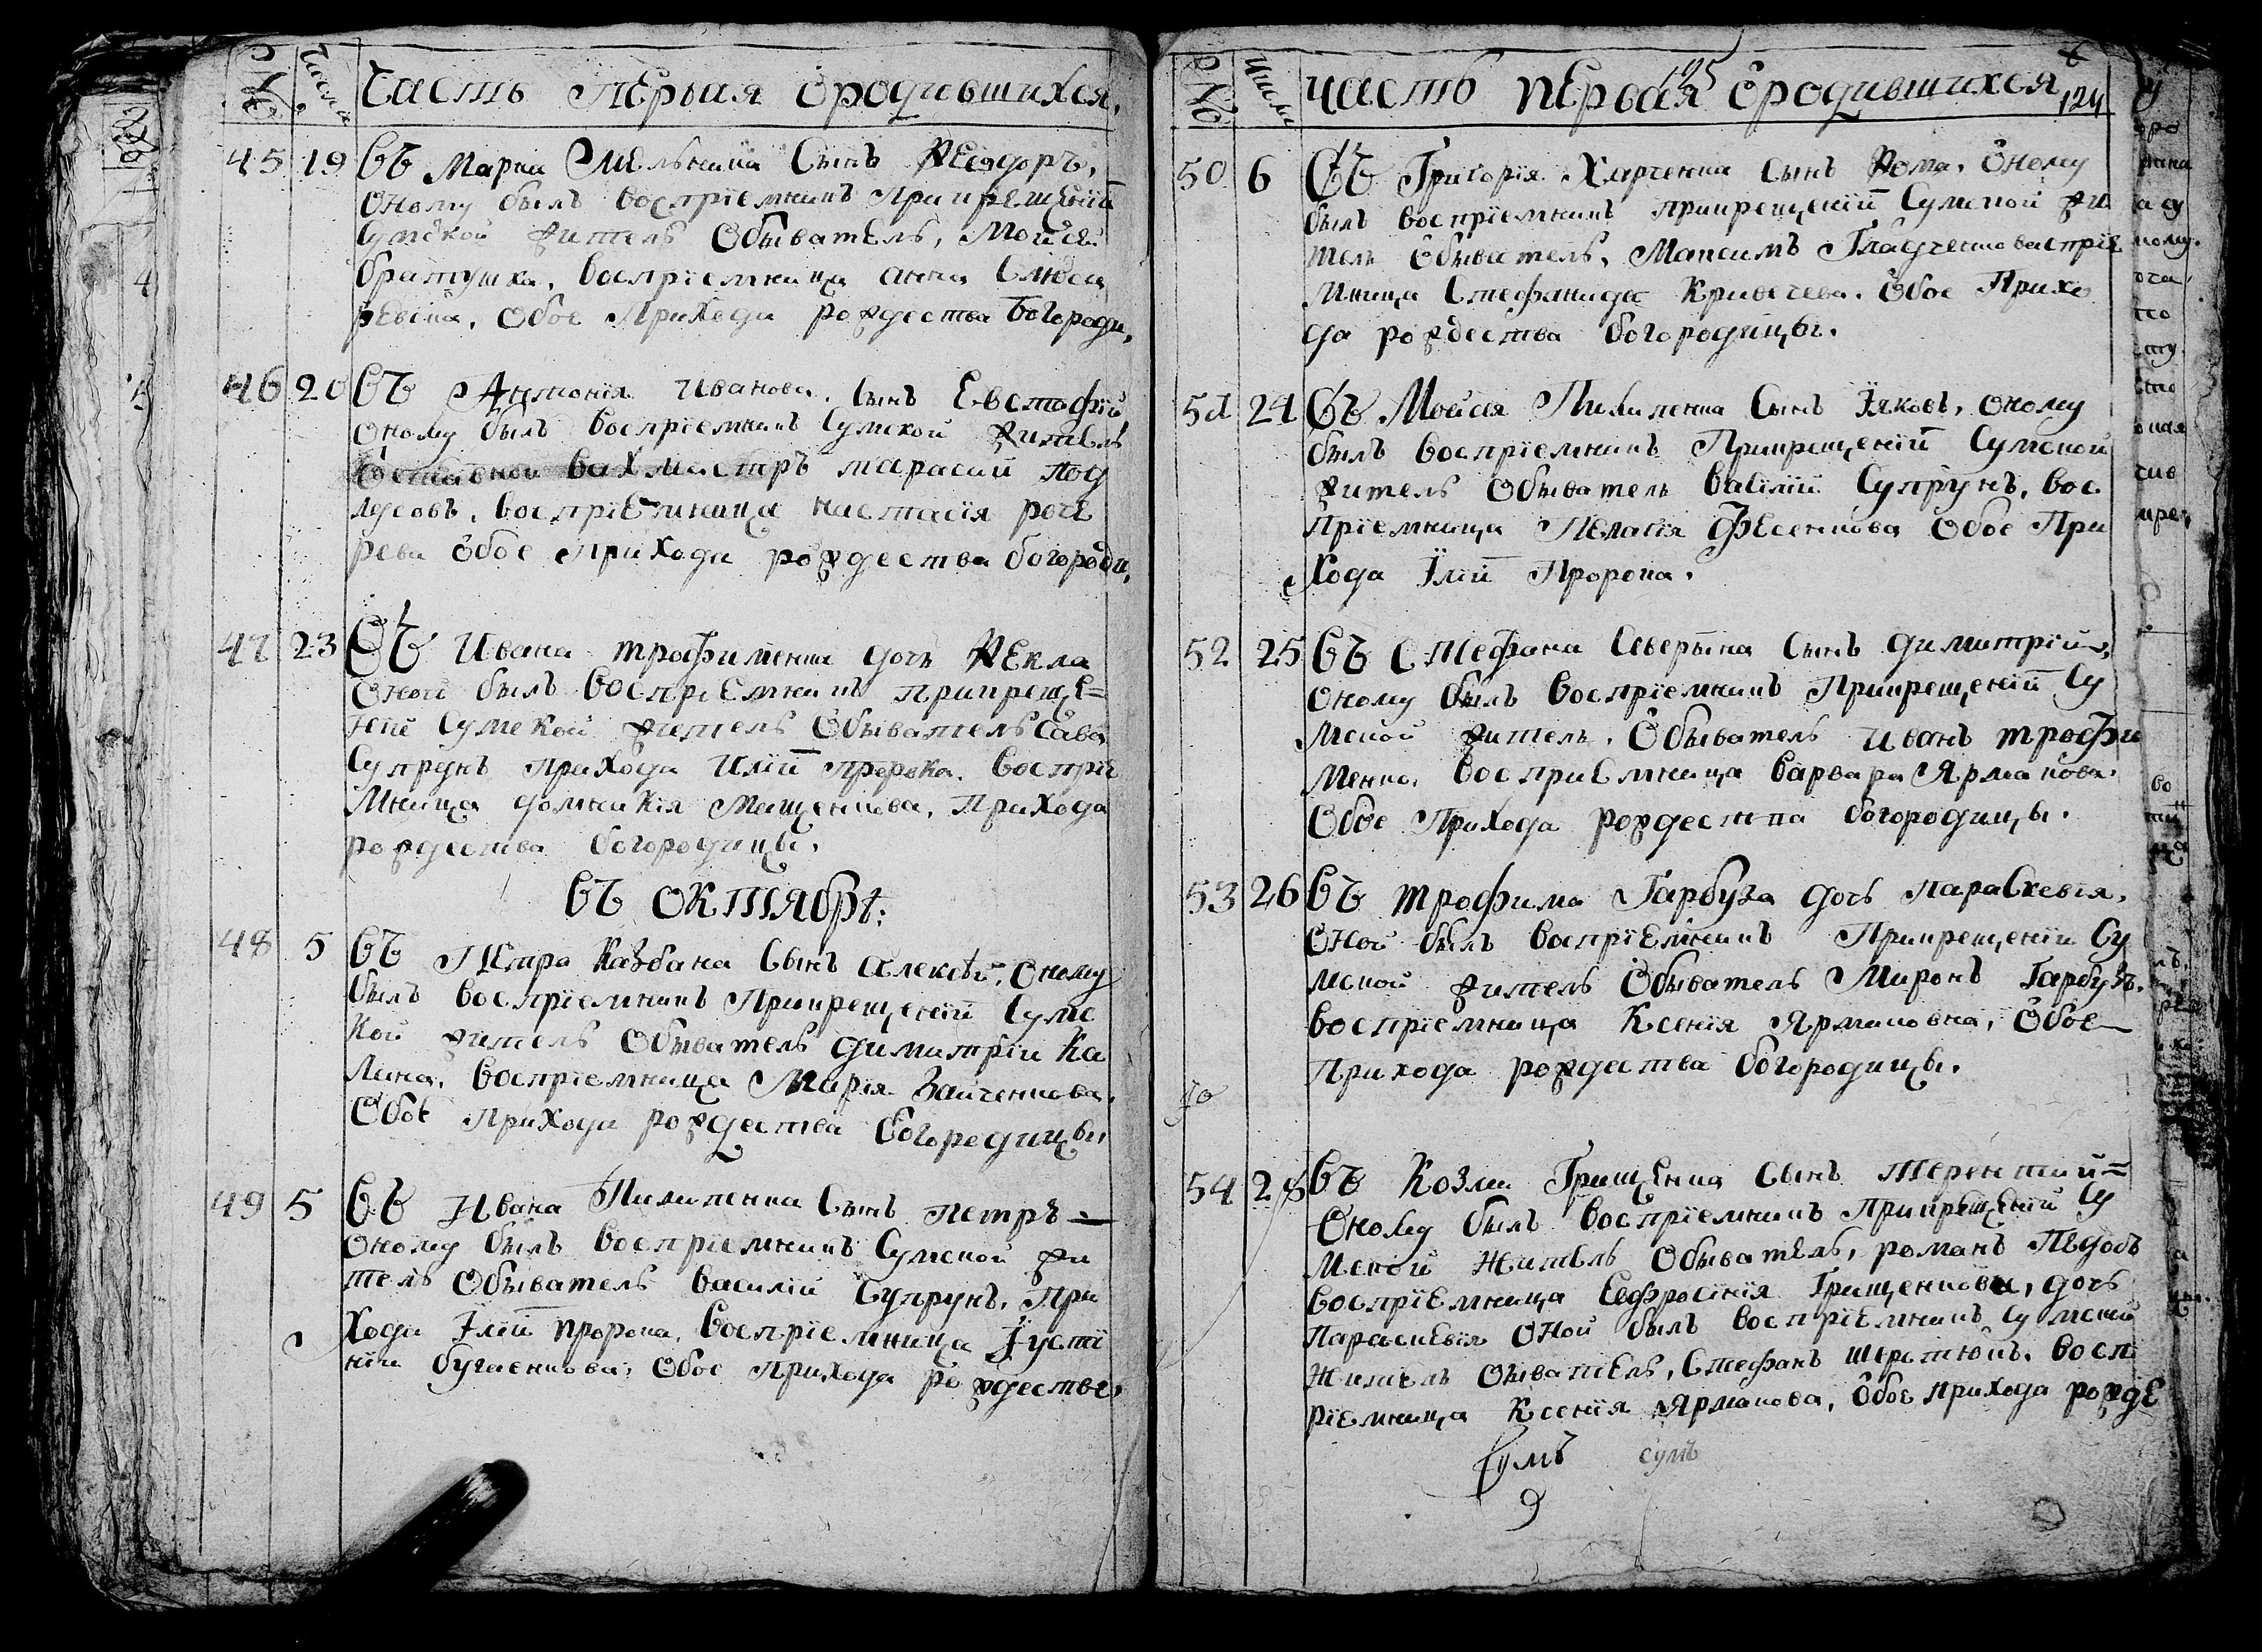 №
Числа
Часть перьвая ородившихся.
45 19 ВЪ Марка Мельника Сынъ Ѳеодоръ,
оному былъ воспрїемникъ Прикрещенїй
Сумской житель Обыватель, Мойсей
братушка, воспрїемница анна
Обое Прихода рождества Богороди,
46 20 ВЪ Антонїя иванова. Сынъ Евстафїй
оному былъ воспрїемникъ Сумской житель
вахмистръ тарасий под
лусовъ, воспрїемница настасїя
рева обое прихода рождества богороди,
47 23 ВЪ ивана трофименка дочь Ѳекла
оной былъ воспрїемникъ прикреще=
нїй Сумской житель Обыватель Сава
Супрунъ прихода илїй пророка. воспрїе
мница домникїя Мищенкова, Прихода
рождества богородицы.
ВЪ ОКТЯБРѢ:
48 5 ВЪ Петра Казбана Сынъ алексѣй, Оному
былъ воспрїемникъ Прикрещенїй Сумс
кой житель Обыватель димитрїй Ка
лина, воспрїемница Марїя Зайченкова,
Обоє Прихода рождества богородицы,
49 5 ВЪ Ивана Пилипенка Сынъ петръ =
оному былъ воспрїемникъ Сумской жи
тель Обыватель василїй Супрунъ, При
хода Їлїй пророка, воспрїемница Їусті
нїя бугаенкова, Обое прихода рождества,
№
Числа
часть первая ородившихся
125
124
50 6 ВЪ Григорїя Харченка Сынъ Ѳома, Оному
былъ воспрїемникъ прикрещенїй Сумской жи
тель Обыватель, Максимъ Гладченко воспрїе
мница Стефанида Кривечева. Обое Прихо
да рождества богородицы.
51 24 ВЪ Мойсея Пилипенка Сынъ Їяковъ, оному
былъ воспрїемникъ Прикрещенїй Сумской
житель Обыватель васїлїй Супрунъ, вос
прїемница Пелагїя Фесенкова Обое При
хода Їлїй Пророка.
52 25 ВЪ Стефана Северина Сынъ димитрїй,
Оному былъ воспрїемникъ Прикрещенїй Су
мской житель, Обыватель иванъ трофи
менко, восприемница варвара Ярмакова.
Обое Прихода рождества богородицы.
53 26 ВЪ трофима Гарбуза дочь параскевїя,
оной былъ воспрїемникъ Прикрещенїй Су
мской житель Обыватель Миронъ Гарбузъ.
воспрїемница Ксенїя Ярмаковна, Обое
прихода рождества богородицы.
54 28 ВЪ Козми Грищенка Сынъ терентий =
Оному былъ воспрїемникъ прикрещенїй Су
мской житель Обыватель, романъ
воспрїемница Евфросїнїя Грищенкова, дочь
параскевїя оной былъ воспрїемникъ Сумской
житель Обыватель, Стефанъ шерстюкъ. восп
рїемница Ксенїя Ярмакова, Обое прихода рожде
сумъ сумъ
9